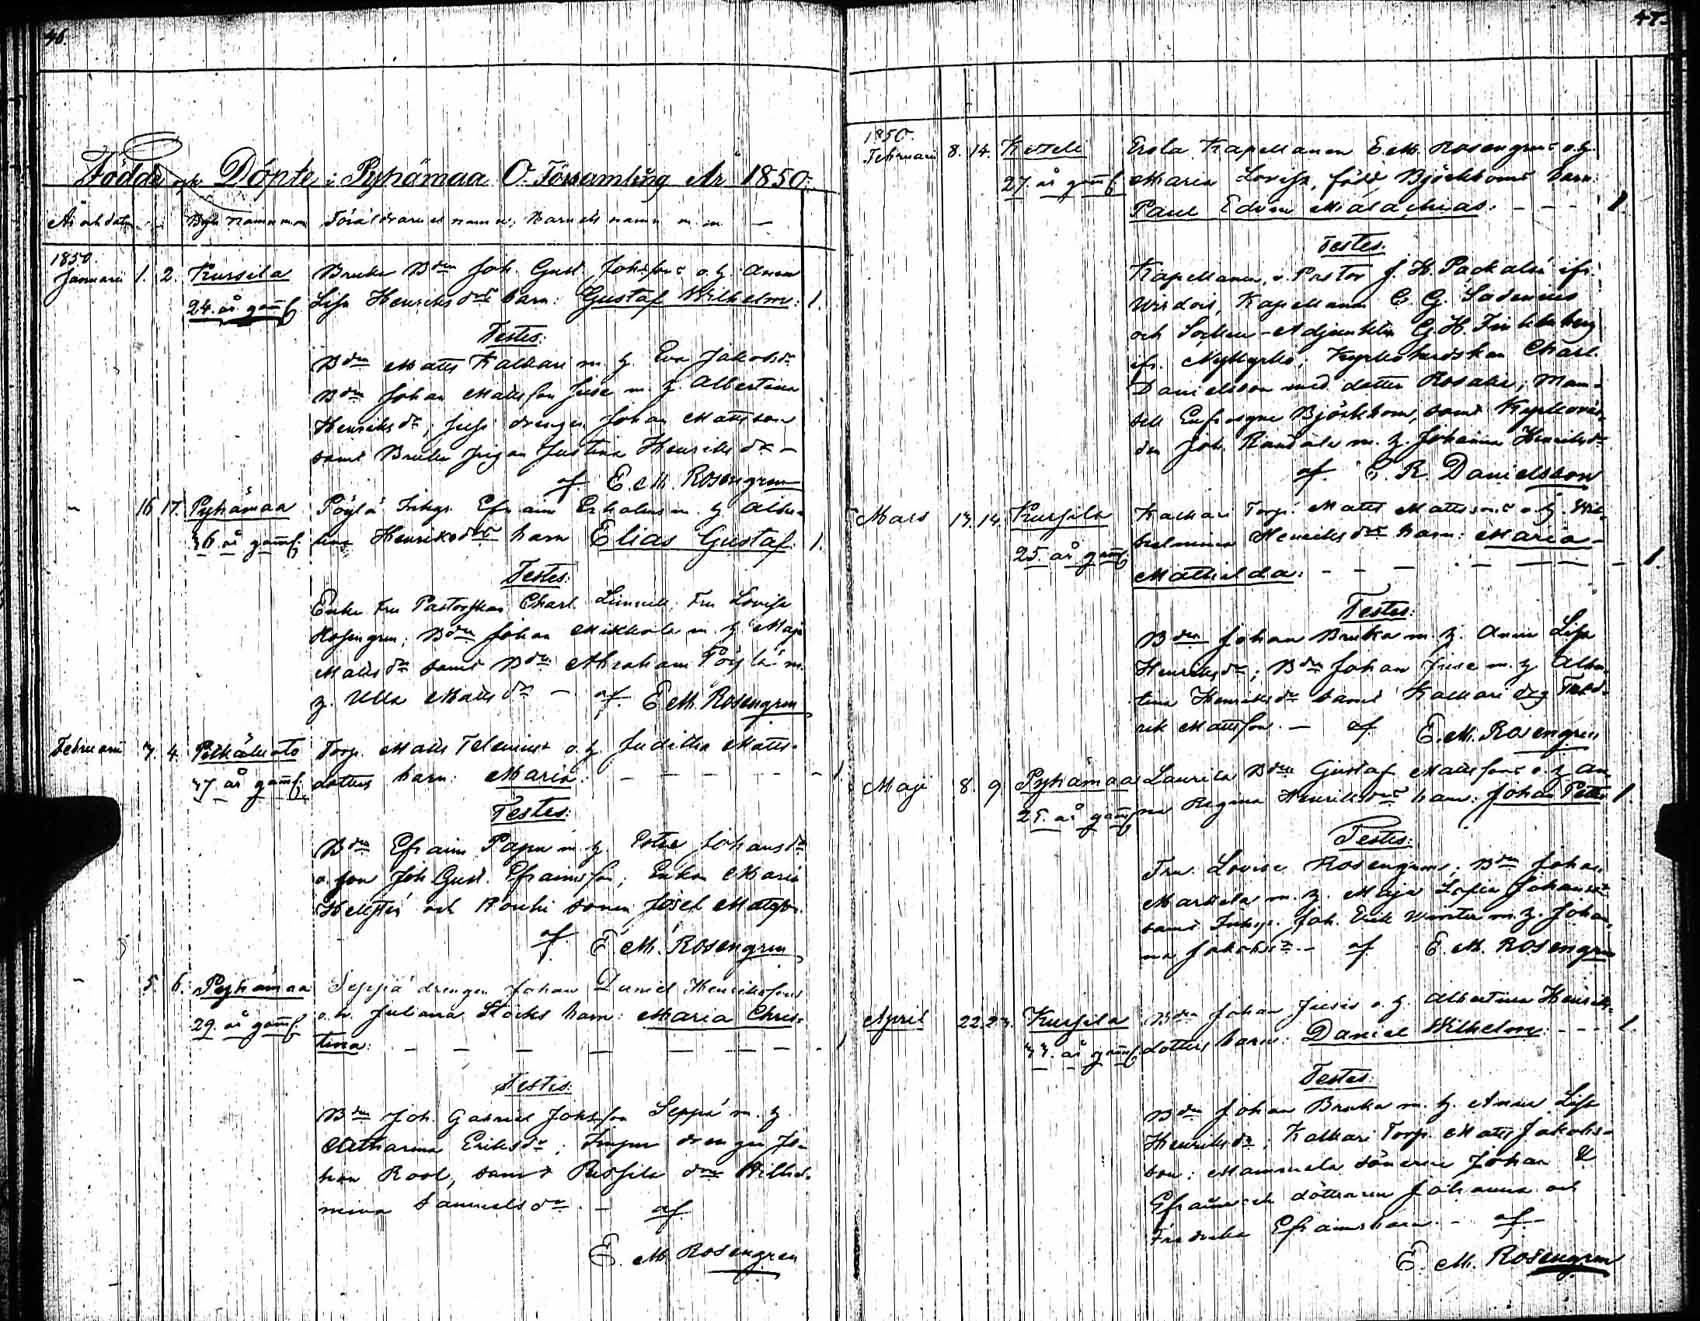 46.
Födde och Döpte i Pyhämaa O. Församling År 1850.
År och dato Byns namn m m Föräldrarnes namn, Barnets namn m. m. —
1850.
Januari 1. 2. Kursila Bruka Bdn Joh. Gust. Johsson o. h. Anna
24. år gaml Lisa Henriksdrs barn: Gustaf Wilhelm: 1.
Testes:
Bdn Matts Kalkari m. h. Eva Jakobsdr
Bdn Johan Mattsson Juse m. h. Albertina
Henriksdr, drengen Johan Mattsson
samt Bruka pigan Justina Henriksdr —
af E. M. Rosengren
16 17. Pyhämaa Pöylä Inhys. Efraim m. h. Alber-
36 år gaml. tina Henriksdrs barn Elias Gustaf. 1.
Testes:
Enke Fru Pastorskan Charl. Fru Lovisa
Rosengren; Bdn Johan Mikkola m. h. Maja
Mattsdr samt Bdn Abraham Pöylä m.
h. Ulla Mattsdr — af E. M. Rosengren
Februari 3. 4. Torp. Matts o. h. Juditha Matts-
37 år gaml. dotters barn: Maria: — — — — 1
Testes:
Bdn Efraim Papu m. h. Johansdr
o. son Joh. Gust. Efraimsson; Enkan Maria
och sonen Josef Mattsson.
af E. M. Rosengren
5. 6. Pyhämaa Seppä drengen Johan Daniel Henriksons
29. år gaml. o. h. Juliana Stocks barn: Maria Chris-
tina: — — — — — — 1
Testes:
Bdn Joh. Gabriel Johsson Seppä m. h.
Catharina Eriksdr; drengen Jo-
han Roos, samt Wilhel-
mina Samuelsdr. — af
E. M. Rosengren
47.
1850.
Februari 8. 14. Ketteli Kapellanen E. M. Rosengrens o. h.
27. år gaml Maria Lovisa, född Björkboms barn:
Paul Edvin Malachias: — — — 1
Testes:
Kapellanen, v. Pastor J. H. Packalén ifr.
Kapellanen C. G. Sadenius
och Socken-Adjunkten G. H.
ifr. Nykyrko, Charl.
Danielsson med dotter Rosalie, Mam-
sell Eufrosyne Björkbom, samt
den Joh. m. h. Johanna Henriksdr
af C. R. Danielsson
Mars 13. 14. Kursila Kalkari Torp. Matts Mattssons o. h. Wil-
25. år gaml helmina Henriksdrs barn: Maria
Mathilda: — — — — — — 1.
Testes:
Bdn Johan Bruka m. h. Anna Lisa
Henriksdr; Bdn Johan Juse m. h. Alber-
tina Henriksdr samt Kalkari drg Fred-
rik Mattsson — af E. M. Rosengren
Maji 8. 9 Pyhämaa Laurila Bdn Gustaf Mattssons o. h. An-
25. år gaml na Regina Henriksdrs barn: Johan Petter 1.
Testes:
Fru Lovise Rosengren; Bdn Johan
Markula m. h. Maja Johansdr
samt Inhys. Joh. Erik m. h. Johan-
na Jakobsdr — af E. M. Rosengren
April 22. 23. Kursila Bdn Johan Juses o. h. Albertina Henriks-
33. år gaml dotters barn: Daniel Wilhelm: — — — 1
Testes:
Bdn Johan Bruka m. h. Anna Lisa
Henriksdr; Kalkari Torp. Matts Jakobs-
son; sönerne Johan &
Efraim och döttrarne Johanna och
Fredrika — af
E. M. Rosengren